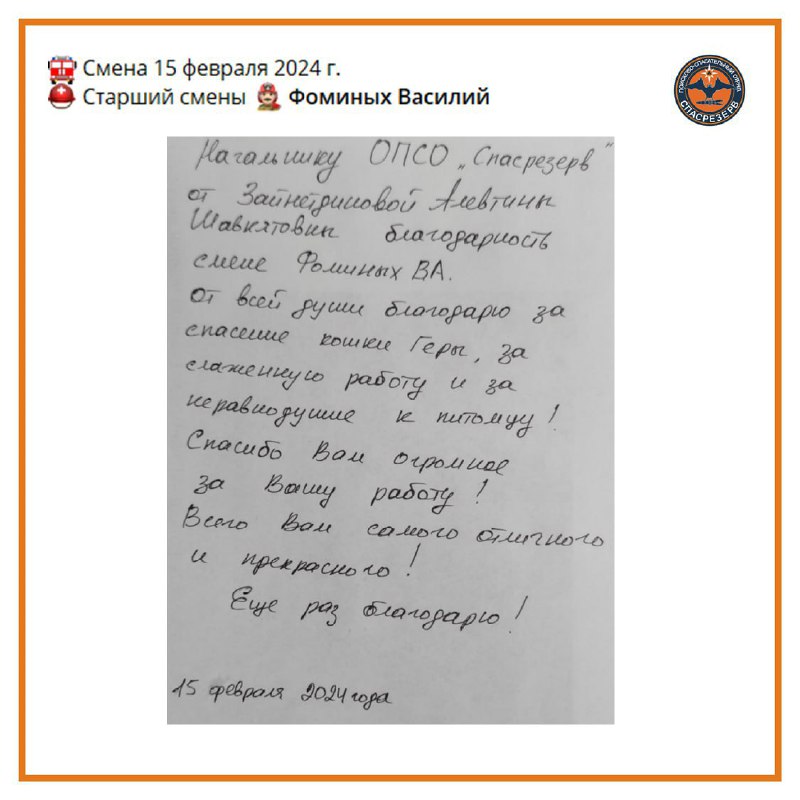 Смена 15 февраля 2024 г.
Старший смены Фоминых Василий
ПОИСКОВО-СПАСАТЕЛЬНЫЙ ОТРЯД
СПАСРЕЗЕРВ
Начальнику ОПСО „Спасрезерв"
от Зайнетдиновой Алевтины
Шавкятовны благодарность
смене Фоминых ВА.
От всей души благодарю за
спасение кошки Геры, за
слаженную работу и за
неравнодушие к питомцу!
Спасибо Вам огромное
за Вашу работу!
Всего Вам самого отличного
и прекрасного!
Еще раз благодарю!
15 февраля 2024 года